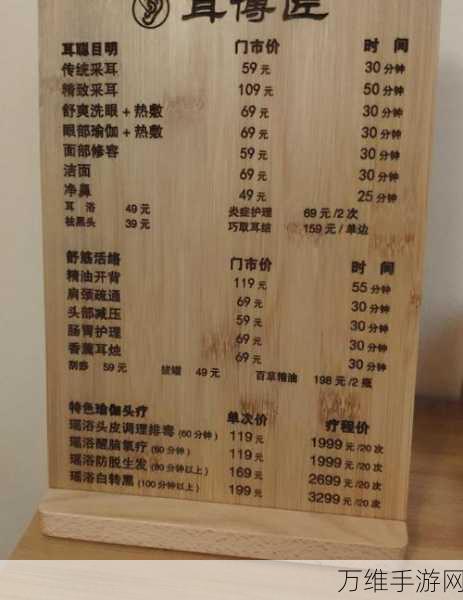 耳博匠
耳聪目明 门市价 时 间
传统采耳 59元 30分钟
精致采耳 109元 50分钟
舒爽洗眼+热敷 69元 30分钟
眼部瑜伽+热敷 69元 30分钟
面部修容 59元 30分钟
洁面 69元 30分钟
净鼻 49元 25分钟
耳 浴 49元 炎症护理 69元/2次
祛黑头 39元 巧取耳结 159元/单边
舒筋活络 门市价 时 间
精油开背 119元 55分钟
肩颈疏通 69元 30分钟
头部减压 59元 30分钟
肠胃护理 69元 30分钟
香薰耳烛 69元 30分钟
刮痧 59元 拔罐 49元 百草精油 198元/2瓶
特色瑜伽头疗 单次价 疗程价
瑶浴头皮调理排毒(60分钟) 119元 1999元/20次
瑶浴醒脑氧疗(60分钟) 119元 1999元/20次
瑶浴防脱生发(80分钟以上) 169元 2699元/20次
瑶浴白转黑(100分钟以上) 199元 3299元/20次
万维手游网